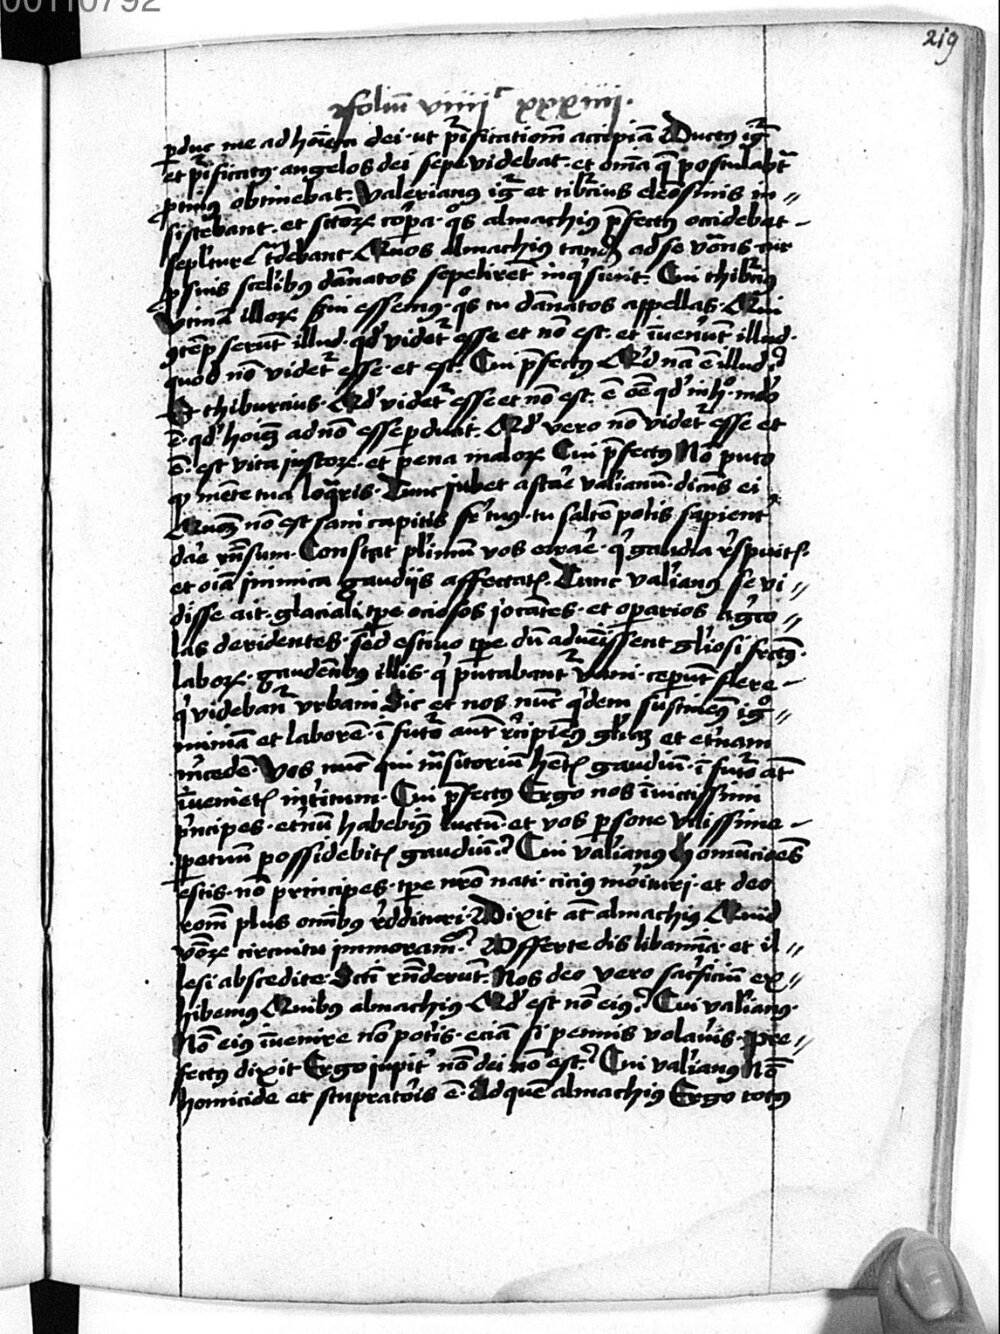 00110792
219
Foliu viiijc xxxiiij.
p̲duc me ad hoīem dei · ut pīficationm accipiā Duct⁹ igr̄
et pīficat⁹ · angelos dei sepe videbat · et om̄a q̄ postulabt̄
ꝓtin⁹ obtinebat · Valerian⁹ igr̄ et tibr̄cius eleosinis in=
sistebant · et sctōꝝ corp̄a · q̊s almachi⁹ p̄fect⁹ occidebat -
sepl̄ture t̄debant Quos almachi⁹ tand̄ ad se vōans cur
ꝓ suis sceli̅b⁹ dānatos sepelirent inq̄siuit · Cui thibr̄ci⁹
Vtinā illoꝝ s̄ui essem⁹ · q̊s tu dānatos appellas · Qui
ꝯtēpserūt illud · qd̕ videt̄ esse et nō est · et īuenert̄ illud ·
quod nō videt̄ esse · et est · Cui p̄fect⁹ Qd̕ nā ē illud ?
Et thiburcius · Qd̕ videt̄ esse et nō est · ē oē qd̕ in h̊ · mdo
ē · qd̕ hoīem ad nō esse p̲duc̄it · Qd̕ vero nō videt̄ esse et
ē · est vita justoꝝ · et pena maloꝝ Cui p̄fect⁹ Nō puto
ꝙ mēte tua loq̄ris · Tunc jubet astare val̄ianū · dicens ei
Quoniā non est sani capitis fr̄ tu⁹ · tu saltē potis sapient̄
dare rn̄sum · Constat pl̄imū vos errare · q̄ gaudia respuitis ·
et oīa inimica gaudijs affectatis · Tunc val̄ian⁹ se vi=
disse ait · glaciali tp̄e ociosos jocātes · et op̲arios agrico=
las deridentes · sed estiuo tp̄e dū aduēissent gl̄iosi fruct⁹ ·
laboꝝ · gaudentib⁹ illis · q̄ putabant̄ vani · ceper̄t flere -
q̄ videbant̄ vrbani Sic et nos nūc q̄dem sustinem⁹ igno=
miniā et laborē · ī futur̄o aut̄ recipiem⁹ gl̄iam et et̄nam
m̄cedē · Vos nūc qui trāsitoriū hētis gaudiū · ī futur̄o at̄
īuenietis int̄itum · Cui p̄fect⁹ Ergo nos īuictissimi
pr̄ncipes · et̄nū habebim⁹ luctū · et vos p̲sone vilissime -
p̲petuū possidebitis gaudiū ? Cui val̄ian⁹ Homūciones
estis · nō principes · tp̄e nr̄o nati · cici⁹ morituri · et deo
ronem plus omib⁹ reddituri · Dixit at̄ almachi⁹ Quid
verboꝝ circuitu immoram̄ ? Offerte dis libamīa · et il=
lesi abscedite · Scti rn̄derūt · Nos deo vero sacrificiū ex=
hibem⁹ Quibus almachi⁹ Qd̕ est nō ei⁹ ? Cui val̄ian⁹ ·
Nōē ei⁹ īuenire nō potis · eciā si pennis volaūis · Pre=
fect⁹ dixit Ergo jupit̄ nōē dei nō est ? Cui val̄ian⁹ Nōē
homicide et stupratoris ē · Ad quē almachi⁹ Ergo tot⁹